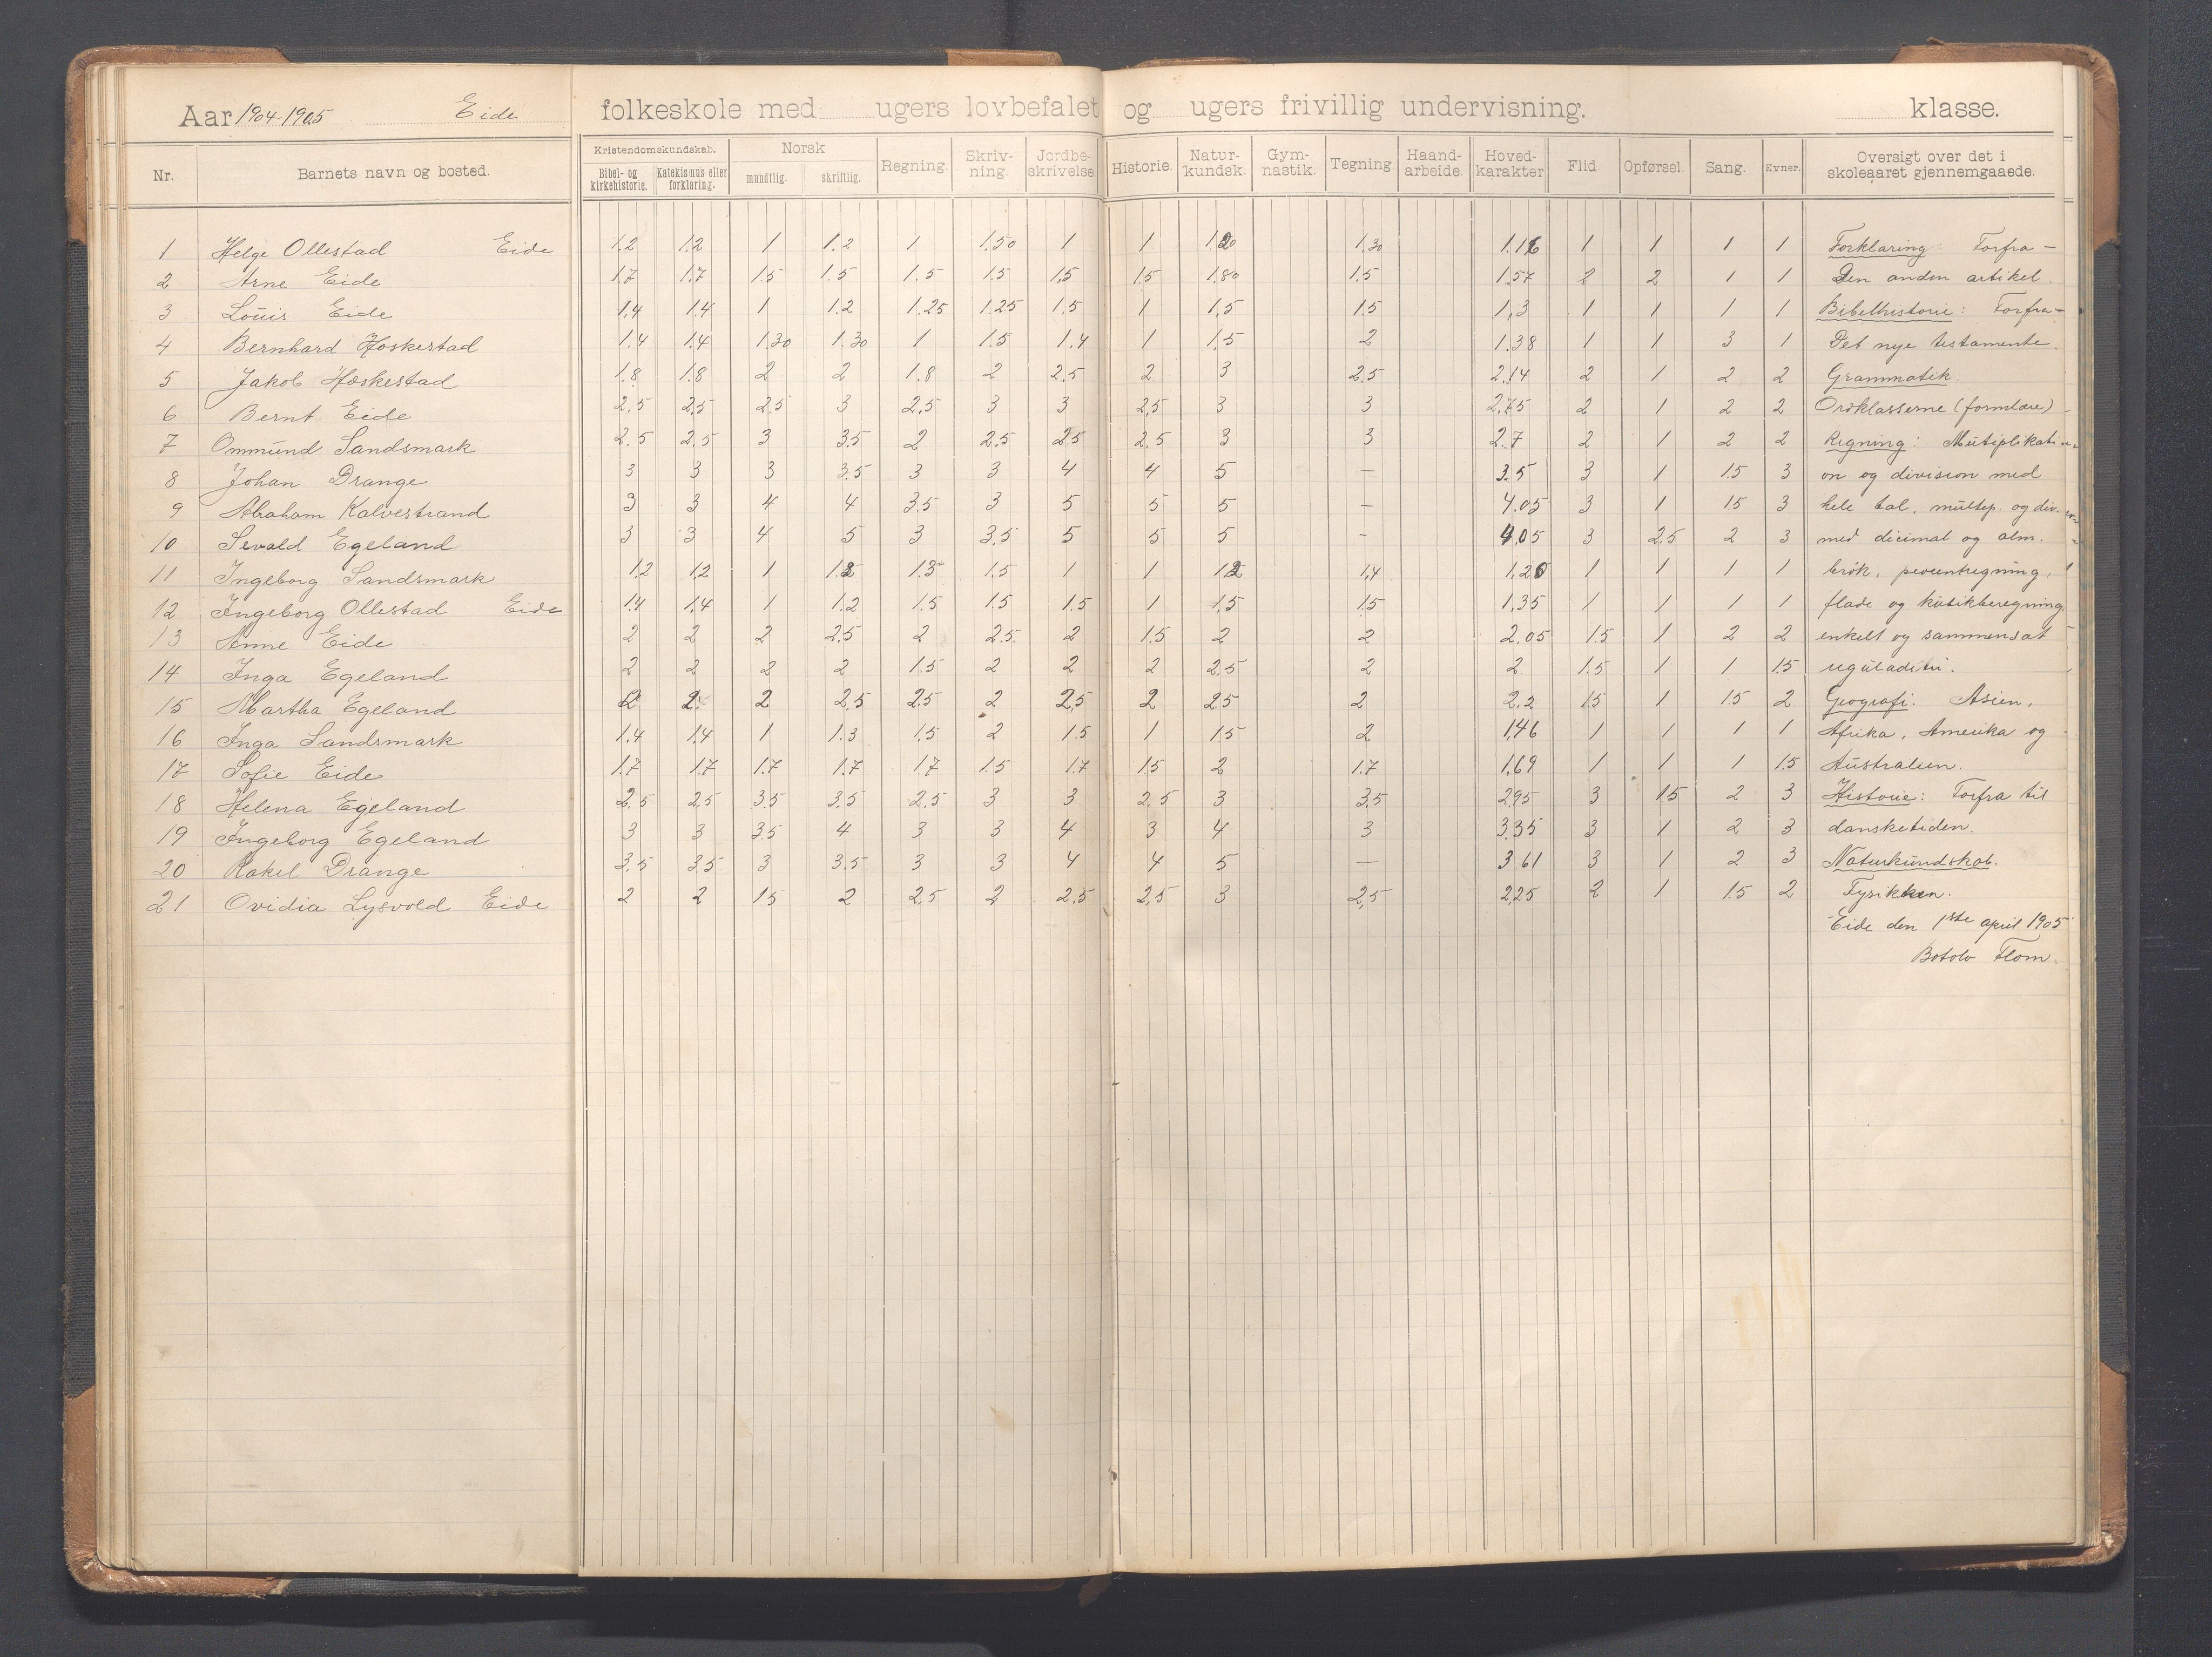 Aar 1904-1905 Eide folkeskole med ugers lovbefalet og ugers frivillig undervisning. klasse.
Nr. Barnets navn og bosted. Kristendomskundskab. Bibel- og kirkehistorie. Katekismus eller forklaring. Norsk mundtlig. skriftlig. Regning. Skriv-ning. Jordbe-skrivelse Historie. Natur-kundsk. Gym-nastik. Tegning Haand-arbeide. Hoved-karakter Flid. Opførsel. Sang. Evner. Oversigt over det i skoleaaret gjennemgaaede.
1 Helge Ollestad Eide 1.2 1.2 1 1.2 1 1.50 1 1 1.20 1.30 1.16 1 1 1 1 Forklaring: Forfra -
2 Arne Eide 1.7 1.7 1.5 1.5 1.5 1.5 1,5 1.5 1.80 1.5 1.57 2 2 1 1 Den anden artikel.
3 Louis Eide 1,4 1,4 1 1.2 1.25 1.25 1.5 1 1,5 1.5 1,3 1 1 1 1 Bibelhistorie: Forfra -
4 Bernhard Hæskestad 1.4 1.4 1.30 1.30 1 1.5 1.4 1 1,5 2 1.38 1 1 3 1 Det nye testamente.
5 Jakob Hæskestad 1.8 1.8 2 2 1.8 2 2.5 2 3 2,5 2.14 2 1 2 2 Grammatik.
6 Bernt Eide 2.5 2,5 2.5 3 2,5 3 3 2,5 3 3 2,75 2 1 2 2 Ordklasserne (formlære)
7 Ommund Sandsmark 2.5 2,5 3 3.5 2 2.5 2,5 2.5 3 3 2.7 2 1 2 2 Regning: Mutiplikati-
8 Johan Drange 3 3 3 3.5 3 3 4 4 5 - 3.5 3 1 1.5 3 on og division med
9 Abraham Kalvestrand 3 3 4 4 3.5 3 5 5 5 - 4.05 3 1 1.5 3 hele tal, multep. og div.
10 Sevald Egeland 3 3 4 5 3 3.5 5 5 5 - 4.05 3 2.5 2 3 med dicimal og alm.
11 Ingeborg Sandsmark 1,2 1,2 1 1.2 1.3 1,5 1 1 1.2 1,4 1,20 1 1 1 1 brøk, procentregning,
12 Ingeborg Ollestad Eide 1.4 1,4 1 1.2 1.5 1.5 1.5 1 1,5 1.5 1,35 1 1 1 1 flade og kubikberegning
13 Anne Eide 2 2 2 2.5 2 2.5. 2 1.5 2 2 2.05 1.5 1 2 2 enkelt og sammensat
14 Inga Egeland 2 2 2 2 1.5 2 2 2 2.5 2 2 1.5 1 1 1.5 reguladetri.
15 Martha Egeland 2 2 2 2,5 2.5 2 2,5 2 2.5 2 2.2 1.5 1 1.5 2 Geografi: Asien,
16 Inga Sandsmark 1.4 1,4 1 1.3 1,5 2 1.5 1 1.5 2 1,46 1 1 1 1 Afrika, Amerika og
17 Sofie Eide 1.7 1.7 1.7 1.7 1.7 1.5 1.7 1.5 2 1.7 1,69 1 1 1 1.5 Australien.
18 Helena Egeland 2.5 2,5 3.5 3.5 2.5 3 3 2,5 3 3,5 2,95 3 1.5 2 3 Historie: Forfra til
19 Ingeborg Egeland 3 3 3.5 4 3 3 4 3 4 3 3.35 3 1 2 3 dansketiden.
20 Rakel Drange 3.5 3.5 3 3.5 3 3 4 4 5 - 3 61 3 1 2 3 Naturkundskab.
21 Ovidia Lysvold Eide 2 2 1.5 2 2,5 2 2.5 2,5 3 2,5 2,25 2 1 1.5 2 Fysikken.
Eide den 1ste april 1905
Botolv Flom.